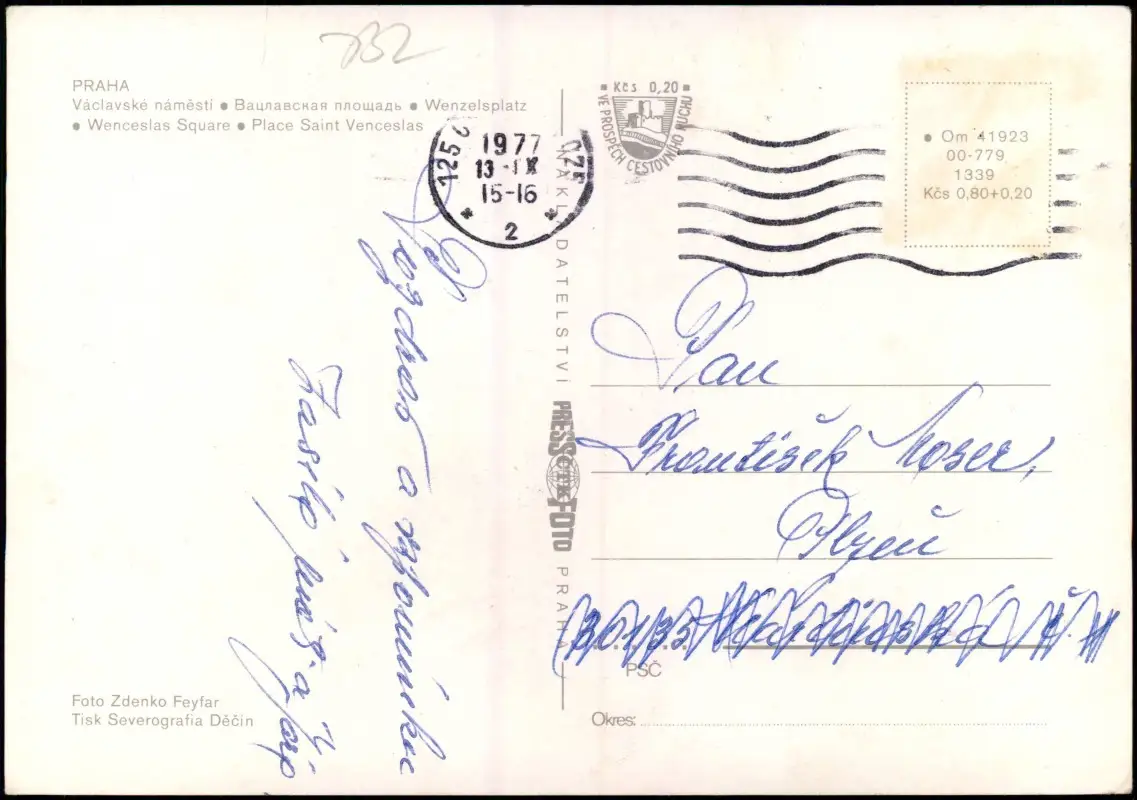 732
PRAHA
Václavské náměstí ● Вацлавская площадь ● Wenzelsplatz
● Wenceslas Square ● Place Saint Venceslas
125
1977
13.-IX
15-16
2
Kčs 0,20
VE PROSPĚCH CESTOVNÍHO RUCHU
● Om 41923
00-779
1339
Kčs 0,80+0,20
Pozdrav a vzpomínku
NAKLADATELSTVÍ PRESSFOTO PRAHA
ČTK
Pan
František Moser,
Plzeň
PSČ
Okres:
Foto Zdenko Feyfar
Tisk Severografia Děčín